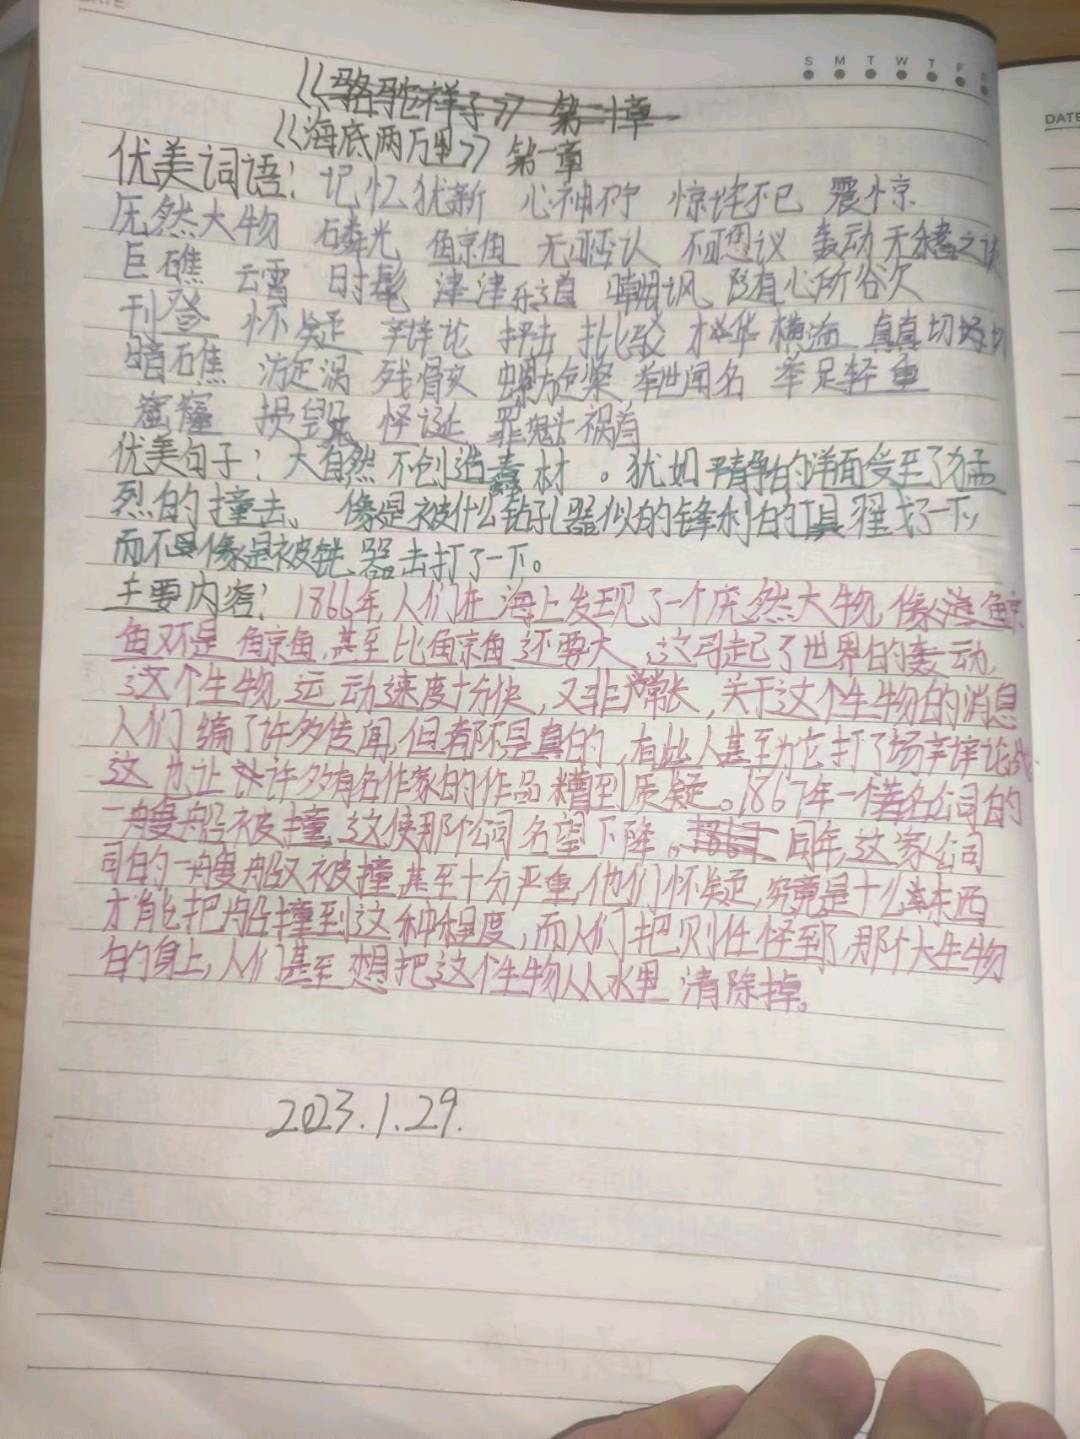 DATE
S M T W T F S
DATE
《骆驼祥子》 第二十章
《海底两万里》 第一章
优美词语：记忆犹新 心神不宁 惊诧不已 震惊
庞然大物 磷光 鲸鱼 无可否认 不可思议 轰动 无稽之谈
巨礁 云霄 时髦 津津乐道 嘲讽 随心所欲
刊登 怀疑 辩论 抨击 批驳 才华横溢 真真切切
暗礁 漩涡 残骸 螺旋桨 举世闻名 举足轻重
窟窿 损毁 怪诞 罪魁祸首
优美句子：大自然不创造蠢材。犹如平静的洋面受至了猛
烈的撞击、 像是被什么钻孔器似的锋利的工具 了一下，
而不是像是被钝器击打了一下。
主要内容：1866年，人们在海上发现了一个庞然大物，像 鲸
鱼又不是鲸鱼，甚至比鲸鱼还要大，这引起了世界的轰动，
这个生物，运动速度十分快，又非常长，关于这个生物的消息
人们编了许多传闻，但都不是真的，有些人甚至为它打了场辩论战，
这也让许多有名作家的作品糟到质疑。1867年一个著名公司的
一艘船被撞，这使那个公司名望下降。同年，这家公司
司的一艘船又被撞，甚至十分严重，他们怀疑，究竟是什么东西
才能把船撞到这种程度，而人们把则任怪到，那个大生物
的身上，人们甚至想把这个生物从水里清除掉。
2023.1.29.